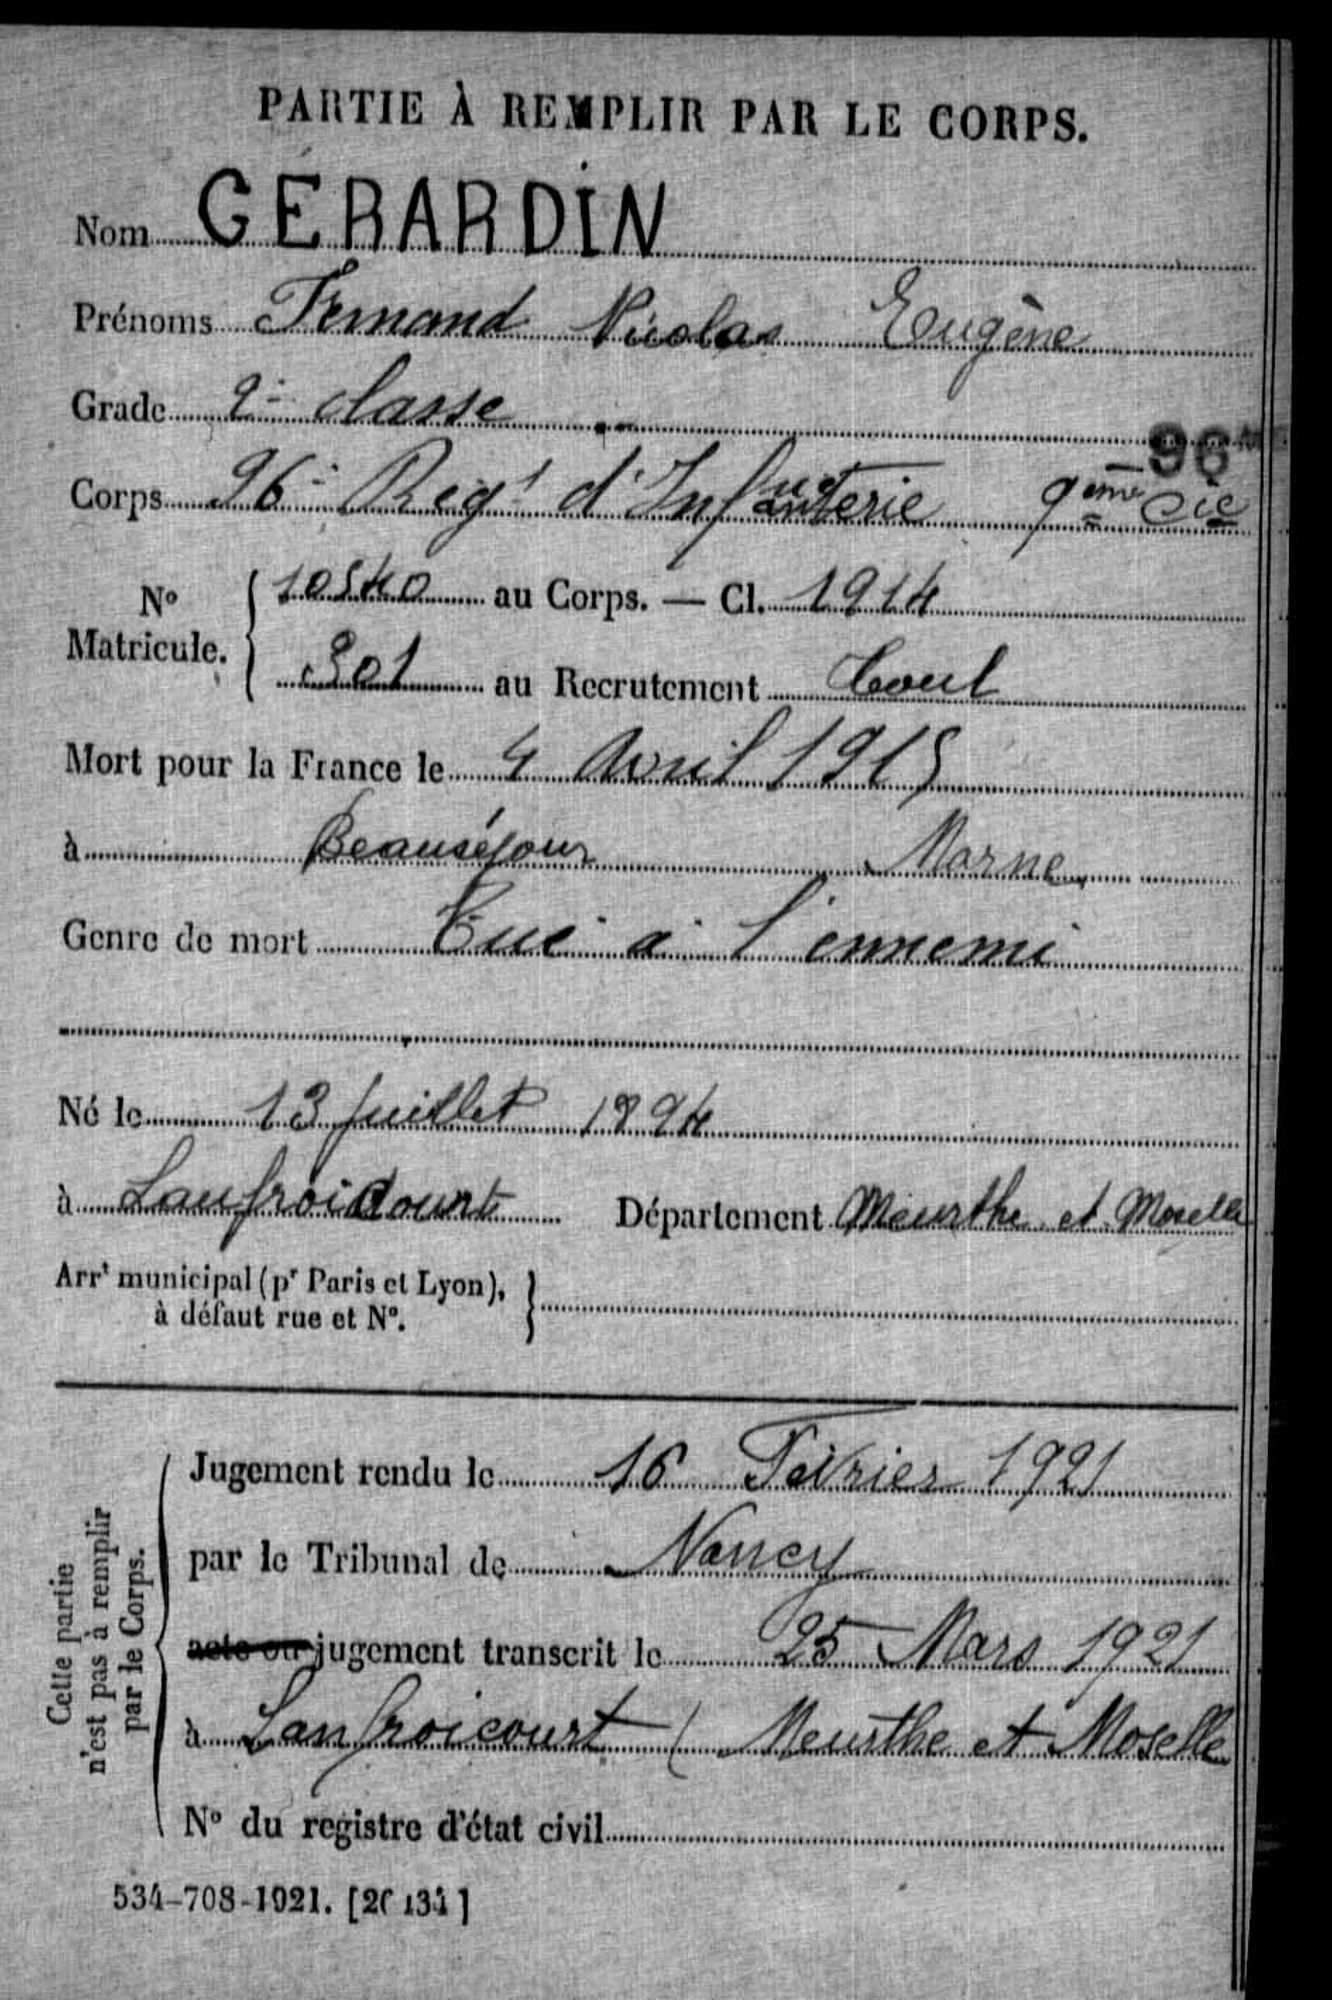 PARTIE À REMPLIR PAR LE CORPS.
Nom GÉRARDIN
Prénoms Fernand Nicolas Eugène
Grade 2e classe
96
Corps 96e Régt d'Infanterie 9ème Cie
No Matricule. 10540 au Corps. — Cl. 1914
301 au Recrutement Toul
Mort pour la France le 4 Avril 1915
à Beauséjour Marne
Genre de mort Tué à l'ennemi
Né le 13 Juillet 1894
à Lanfroicourt Département Meurthe et Moselle
Arrt municipal (pr Paris et Lyon),
à défaut rue et No.
Cette partie
n'est pas à remplir
par le Corps.
Jugement rendu le 16 Février 1921
par le Tribunal de Nancy
acte ou jugement transcrit le 25 Mars 1921
à Lanfroicourt (Meurthe et Moselle
No du registre d'état civil
534-708-1921. [26 134]